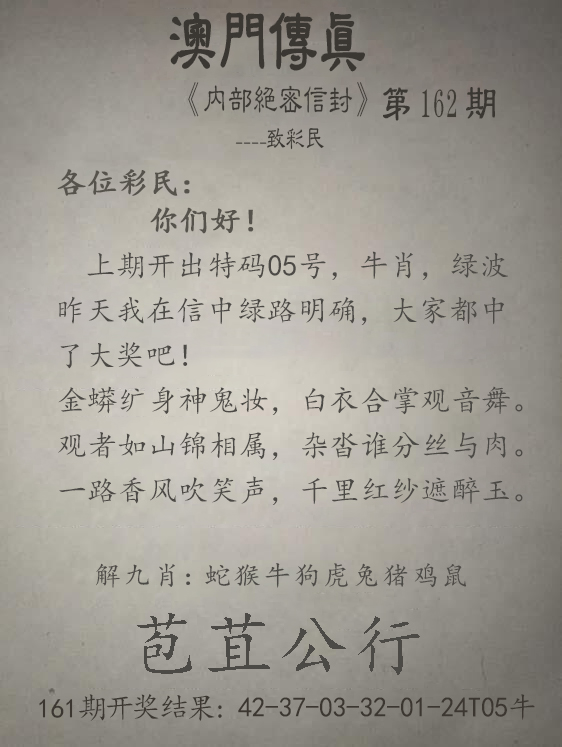 澳門傳眞
《内部絕密信封》第162期
----致彩民
各位彩民：
你们好！
上期开出特码05号，牛肖，绿波
昨天我在信中绿路明确，大家都中
了大奖吧！
金蟒纩身神鬼妆，白衣合掌观音舞。
观者如山锦相属，杂沓谁分丝与肉。
一路香风吹笑声，千里红纱遮醉玉。
解九肖：蛇猴牛狗虎兔猪鸡鼠
苞苴公行
161期开奖结果：42-37-03-32-01-24T05牛